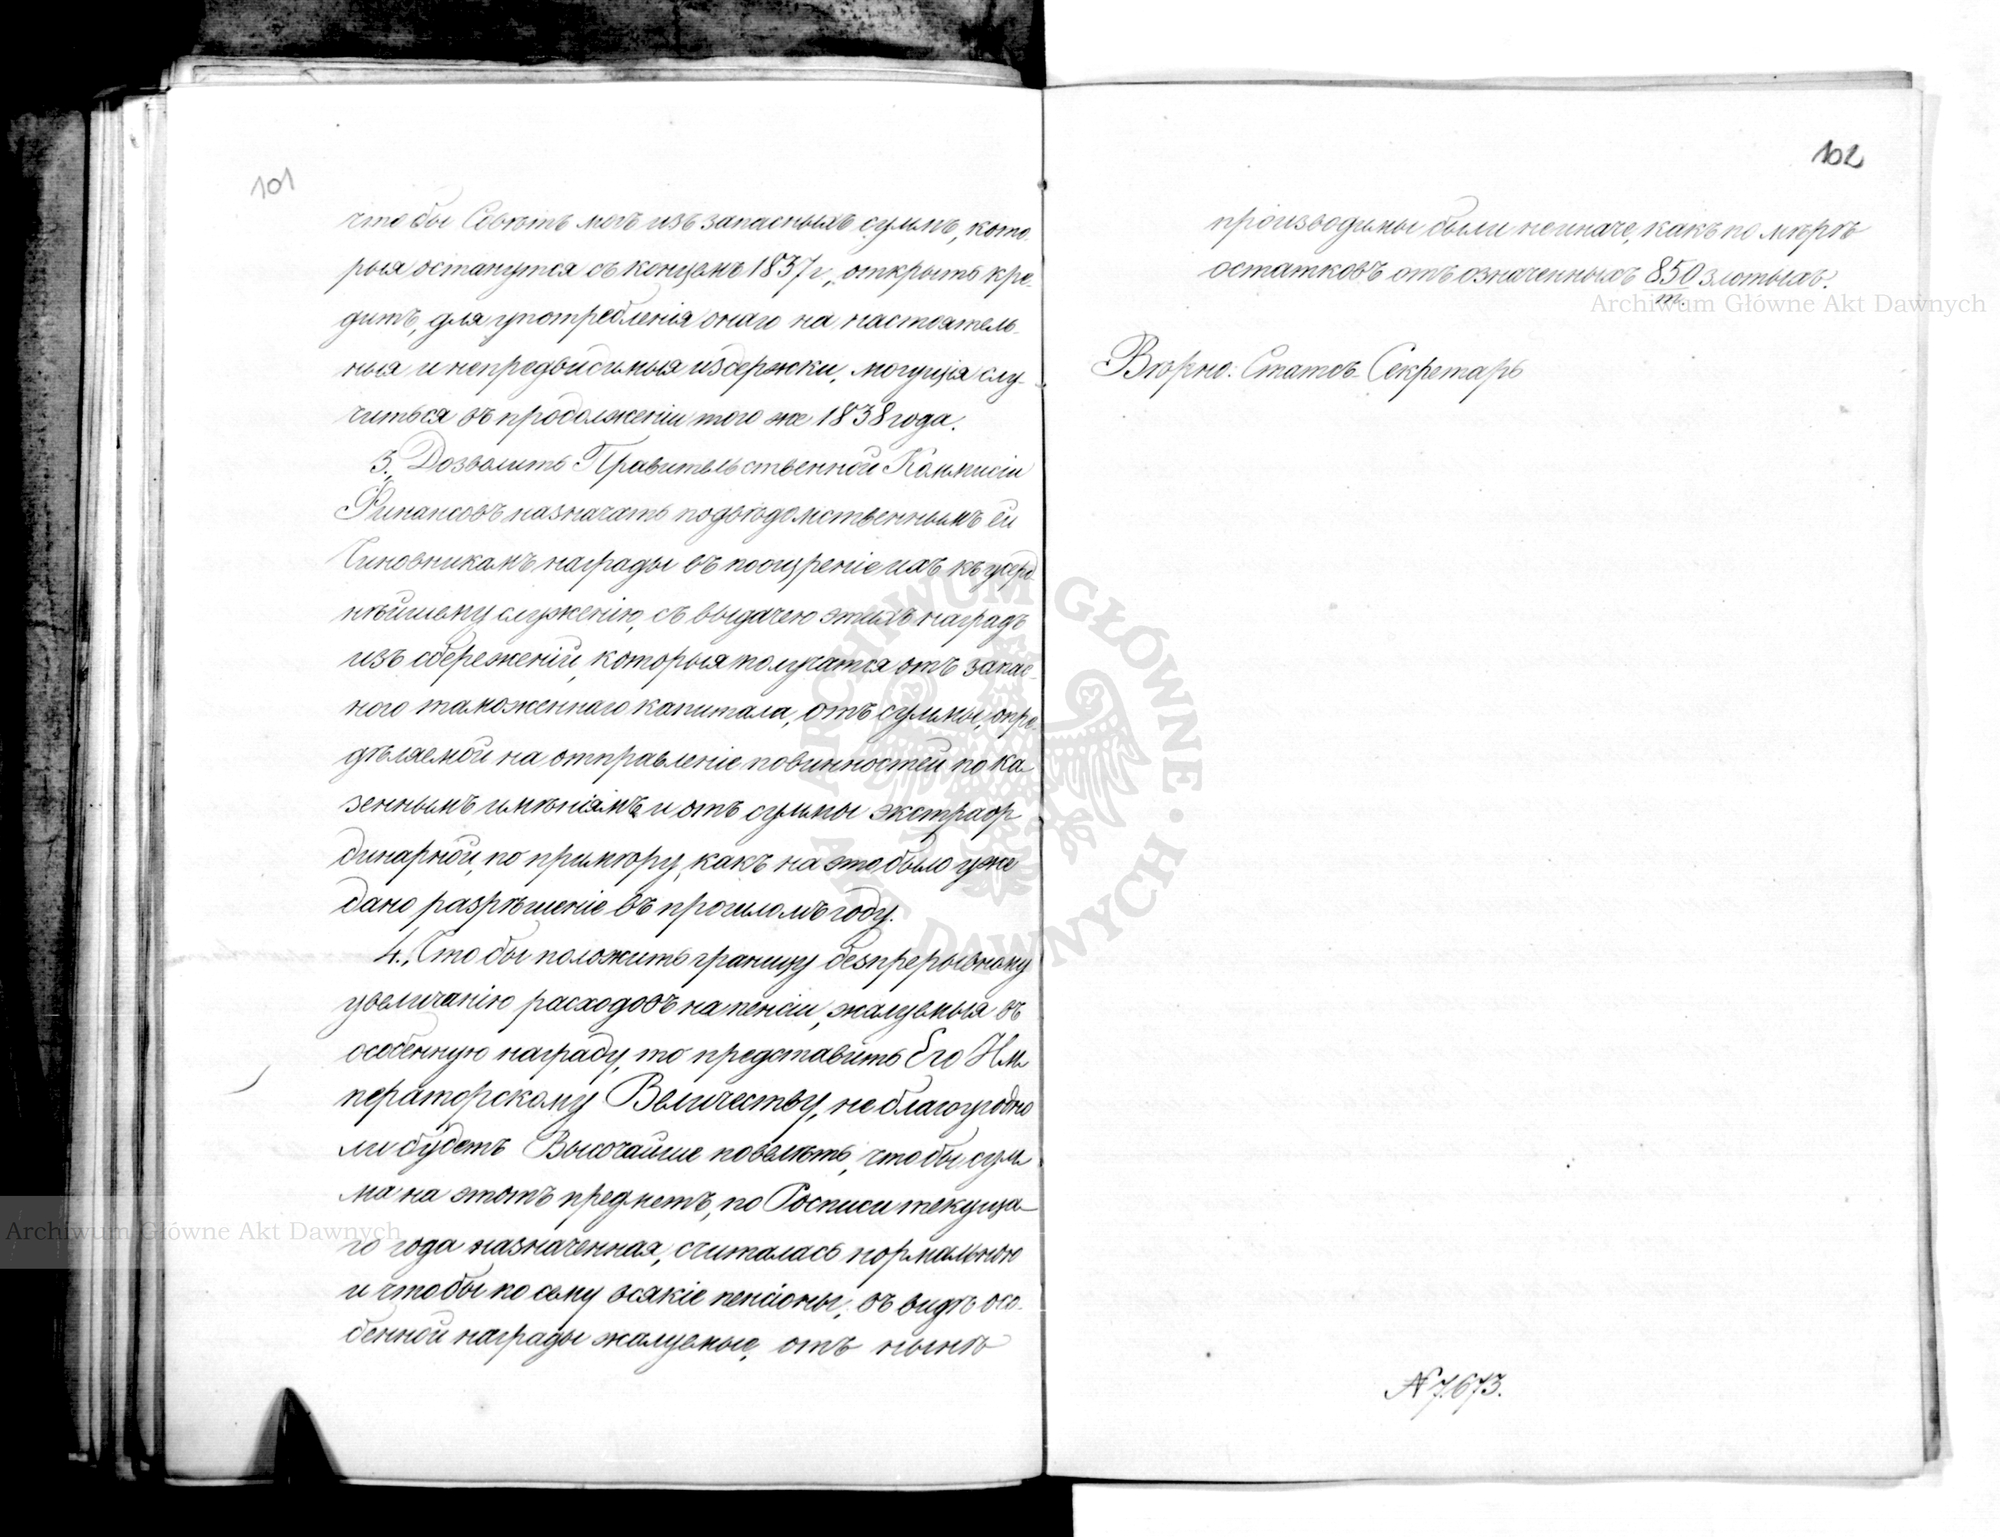 101
что бы Совѣтъ могъ изъ запасныхъ суммъ, кото-
рыя останутся съ концемъ 1837 г., открыть кре-
дитъ, для употребленія онаго на настоятель-
ныя и непредвидимыя издержки, могущія слу-
читься въ продолженіи того же 1838 года.
3., Дозволить Правительственной Коммисіи
Финансовъ назначать подвѣдомственнымъ ей
Чиновникамъ награды въ поощреніе ихъ къ усерд-
нѣйшему служенію, съ выдачею этихъ наградъ
изъ сбереженій, которыя получатся отъ запас-
ного таможеннаго капитала, отъ суммы, опре-
дѣляемой на отправленіе повинностей по ка-
зеннымъ имѣніямъ и отъ суммы экстраор-
динарной, по примѣру, какъ на это было уже
дано разрѣшеніе въ прошломъ году.
4., Что бы положить границу безпрерывному
увеличанію расходовъ на пенсіи, жалуемыя въ
особенную награду, то представить Его Им-
ператорскому Величеству, не благоугодно
ли будетъ Высочайше повелѣть, что бы сум-
ма на этотъ предметъ, по Росписи текуща-
го года назначенная, считалась нормальною
и что бы по сему всякіе пенсіоны, въ видѣ осо-
бенной награды жалуемые, отъ нынѣ
102
производимы были неиначе, какъ по мѣрѣ
остатковъ отъ означенныхъ 850 злотыхъ.
т.
Вѣрно: Статсъ-Секретарь
N 7673.
Archiwum Główne Akt Dawnych
Archiwum Główne Akt Dawnych
ARCHIWUM GŁÓWNE · AKT DAWNYCH ·